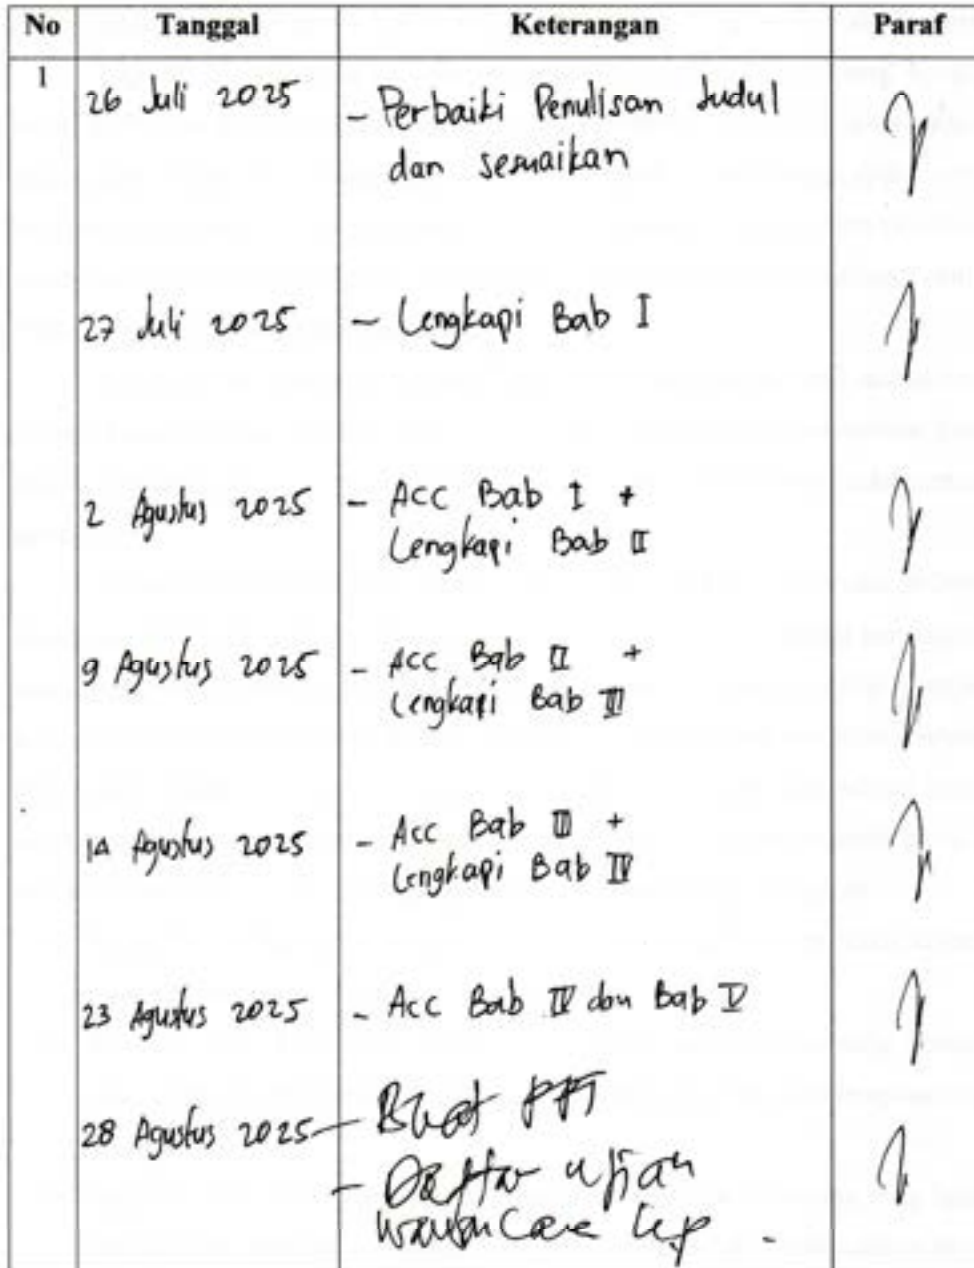 No Tanggal Keterangan Paraf
1
26 Juli 2025 - Perbaiki Penulisan Judul
dan sesuaikan
27 Juli 2025 - Lengkapi Bab I
2 Agustus 2025 - Acc Bab I +
Lengkapi Bab II
9 Agustus 2025 - Acc Bab II +
Lengkapi Bab III
14 Agustus 2025 - Acc Bab III +
Lengkapi Bab IV
23 Agustus 2025 - Acc Bab IV dan Bab V
28 Agustus 2025 - Buat PPT
- Daftar ujian